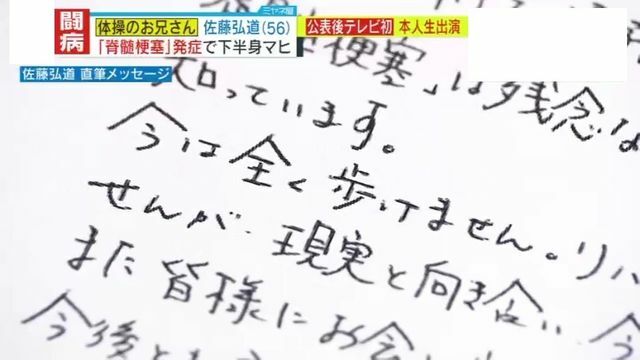 闘病
体操のお兄さん 佐藤弘道(56)
ミヤネ屋
公表後テレビ初 本人生出演
「脊髄梗塞」発症で下半身マヒ
佐藤弘道 直筆メッセージ
梗塞」は残念な
知っています。
今は全く歩けません。リハ
せんが、現実と向き合い、今
また皆様にお会
今後とも